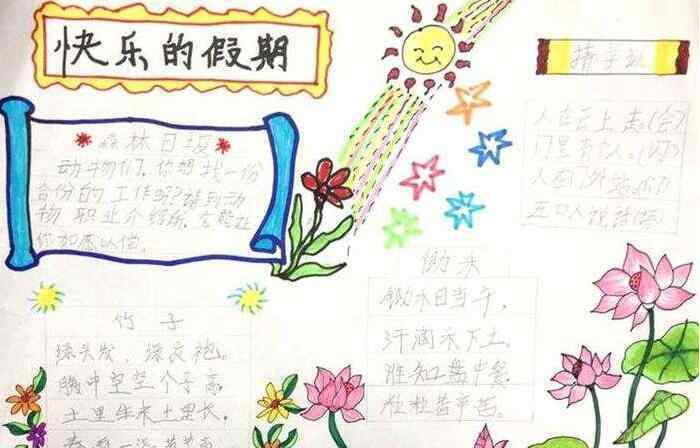 快乐的假期
森林日报
动物们,你想找一份
合份的工作吗?请到动
物职业介绍所,它能让
你如愿以偿。
猜字谜
人在云上走。(会)
门里有个人。(闪)
竹子
绿头发,绿衣袍。
腹中空空个子高,
土里生来土里长,
锄禾
锄禾日当午,
汗滴禾下土。
谁知盘中餐,
粒粒皆辛苦。